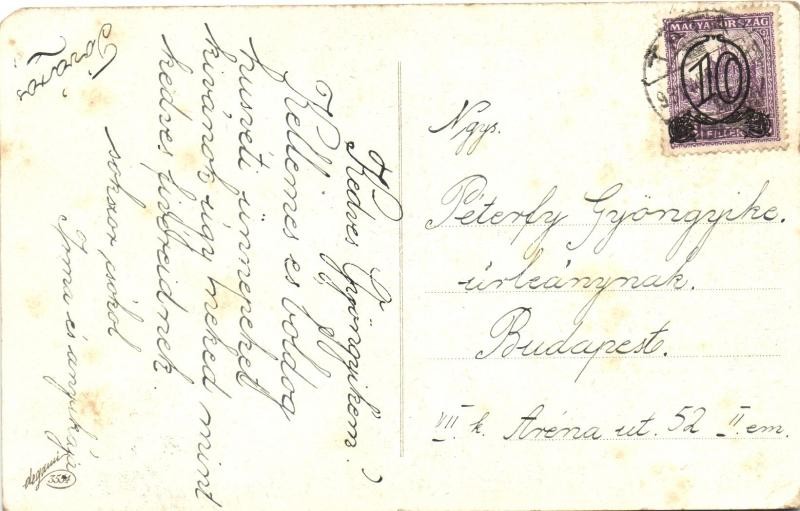 Kedves Gyöngyikém!
Kellemes es boldog
husvéti ünnepeket
kivánok úgy neked mint
kedves
sokszor csókol
Irma és anyukája
Ngys.
Péterfy Gyöngyike.
úrleánynak.
Budapest.
VII k. Aréna ut. 52 II em.
MAGYARORSZÁG
10
FILLÉR
degami
3534